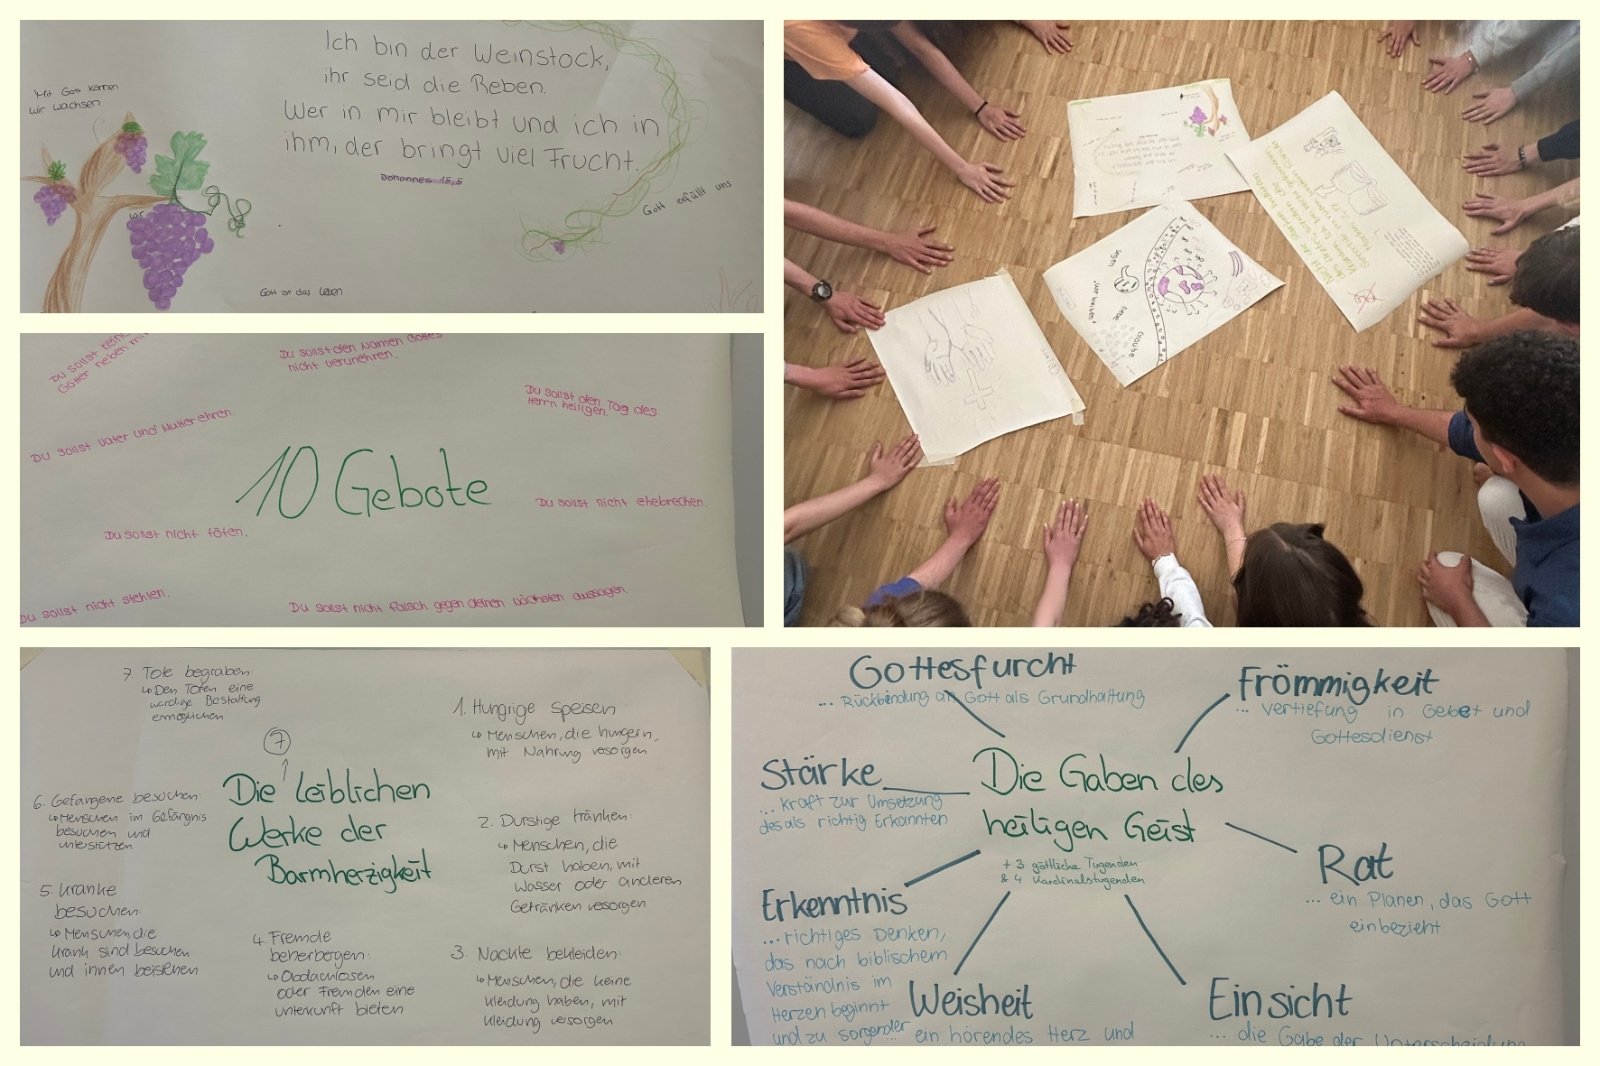 Mit Gott können
wir wachsen
Ich bin der Weinstock,
ihr seid die Reben.
Wer in mir bleibt und ich in
ihm, der bringt viel Frucht.
Johannes 15,5
wir
Gott erfüllt uns
Gott ist das Leben
Du sollst
Götter neben
Du sollst den Namen Gottes
nicht verunehren.
Du sollst den Tag des
Herrn heiligen.
Du sollst Vater und Mutter ehren.
10 Gebote
Du sollst nicht ehebrechen.
Du sollst nicht töten.
Du sollst nicht stehlen.
Du sollst nicht falsch gegen deinen Nächsten aussagen.
Segen
Liebe
Glaube
7. Tote begraben:
↳ Den Toten eine
würdige Bestattung
ermöglichen
1. Hungrige speisen
↳ Menschen, die hungern,
mit Nahrung vesorgen
7
Die leiblichen
Werke der
Barmherzigkeit
6. Gefangene besuchen:
↳ Menschen im Gefängnis
besuchen und
unterstützen
2. Durstige tränken:
↳ Menschen, die
Durst haben, mit
Wasser oder anderen
Getränken vesorgen
5. Kranke
besuchen:
↳ Menschen, die
krank sind besuchen
und innen beistehen
4. Fremde
beherbergen:
↳ Obdachlosen
oder Fremden eine
unterkunft bieten
3. Nackte bekleiden:
↳ Menschen, die keine
Kleidung haben, mit
Kleidung vesorgen
Gottesfurcht
... Rückbindung an Gott als Grundhaltung
Frömmigkeit
... Vertiefung in Gebet und
Gottesdienst
Stärke
... Kraft zur Umsetzung
des als richtig Erkannten
Die Gaben des
heiligen Geist
+ 3 göttliche Tugenden
& 4 Kardinalstugenden
Rat
... ein Planen, das Gott
einbezieht
Erkenntnis
... richtiges Denken,
das nach biblischem
Verständnis im
Herzen beginnt
und zu sorgender
Weisheit
... ein hörendes Herz und
Einsicht
... die Gabe der Unterscheidung